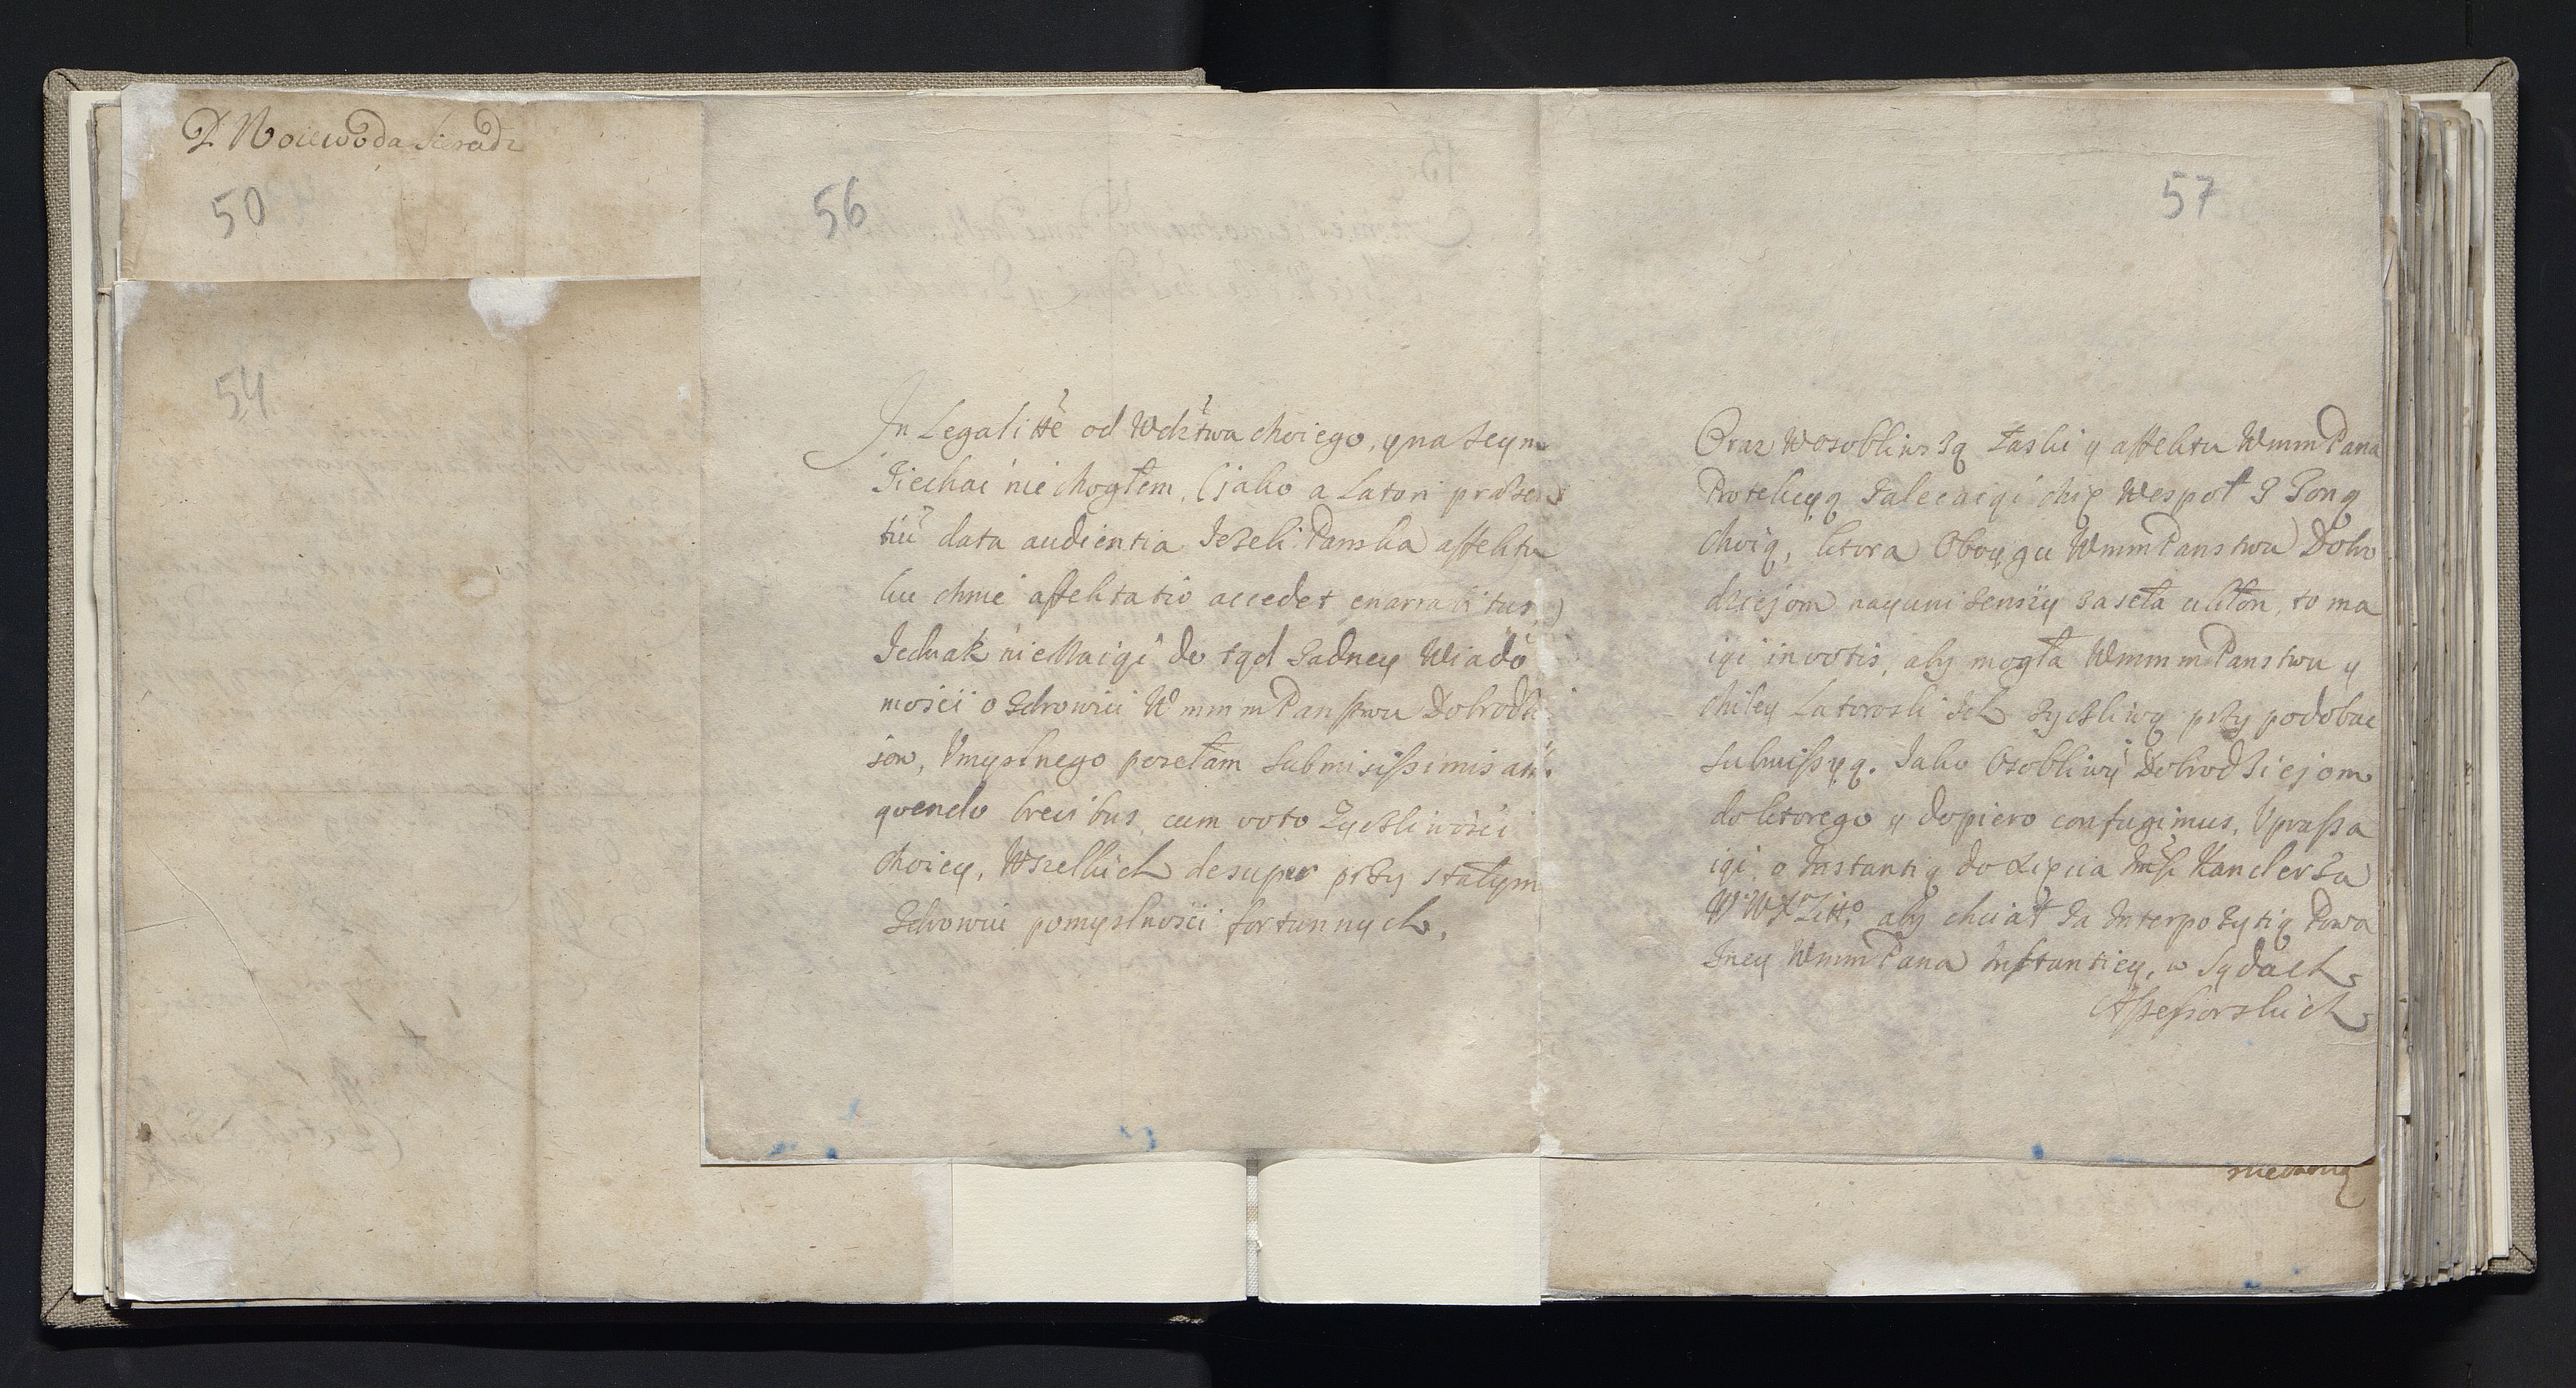 P. Woiewoda Sieradz
50
54
56
In Legalitte od Wdztwa Moiego, y na Seym
Jiechać nie Mogłem, (jako a Latori præsen
tiu data audientia Jeżeli Panska affektu
ku Mnie affektatio accedet enarrabitur)
Jednak nie Maiąc do tąd Żadney Wiado
mości o Zdrowiu WmmmPanstwu Dobrodzi
iow, Umyslnego posełam submisissimis
quendo brevibus, cum voto Zyczliwości
Moiey, Wszelkich desuper przy stałym
Zdrowiu pomyslności fortunnych,
57
Oraz W osobliwszą Łaskę y affektu WmmPana
Protekcyą Zalecaiąc Mię Wespoł Z Żoną
Moią, ktora Oboygu WmmPanstwu Dobro
dziejom nayunizenszy zaseła ukłon, to ma
iąc in votis, aby mogła WmmmPanstwu y
Miłey Latorosli Ich zyczliwą przypodobac
submissyą. Jako Osobliwy Dobrodziejom
do ktorego y dopiero confugimus, Uprassa
iąc, o Instantią do Xięcia Kanclerza
WWXLitto aby chciał Za Interpozytią Powa
żney WmmPana Instantiey, w Sądach
Assessorskich